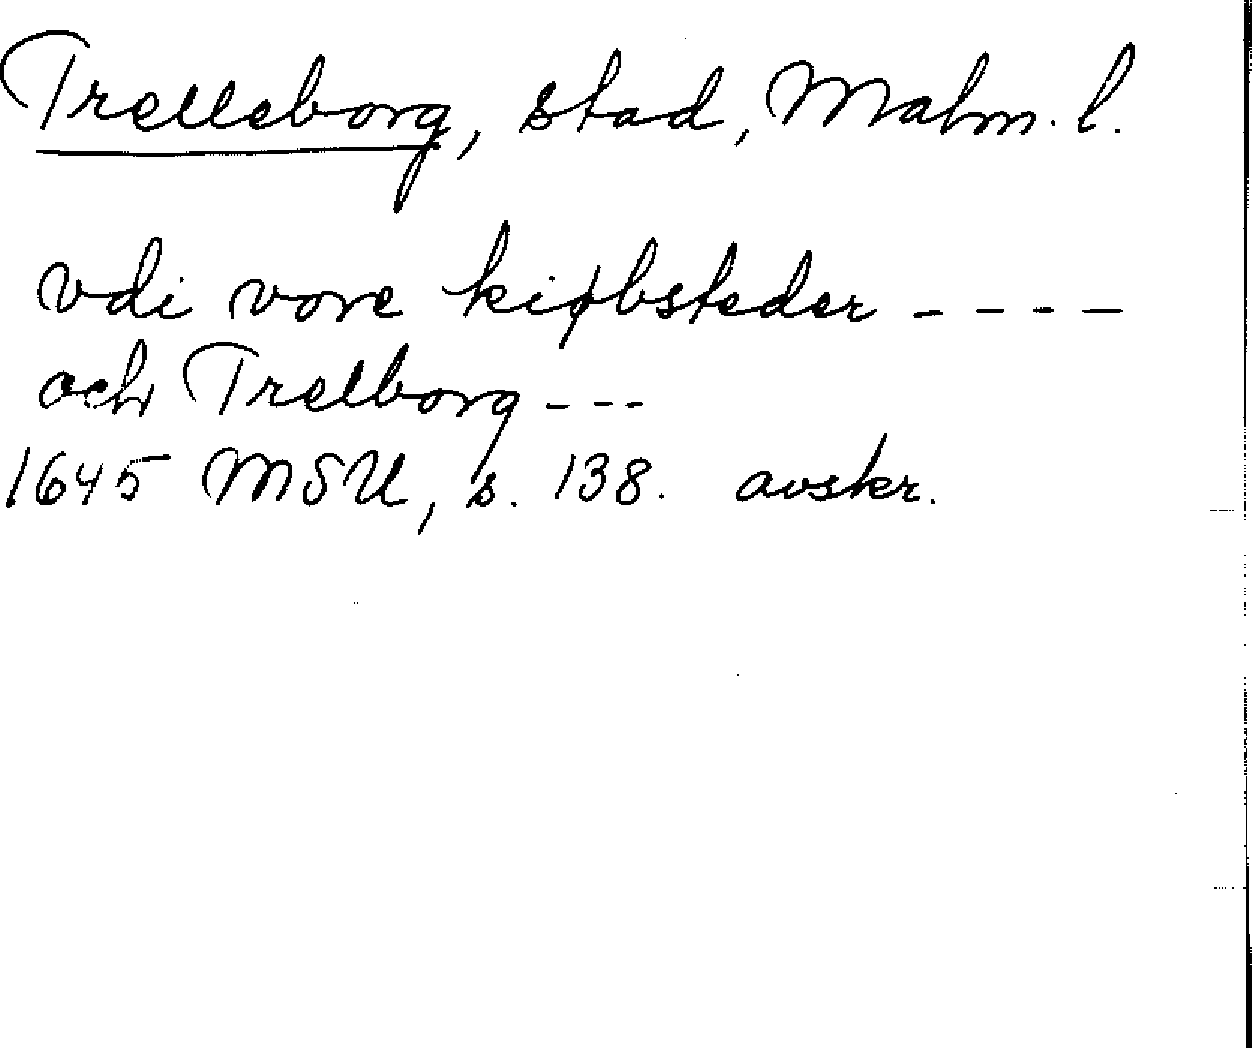 Trelleborg, stad, Malm. l.
vdi vore kiøbsteder - - - -
och Trelborg - - -
1645 MSU, s. 138. avskr.